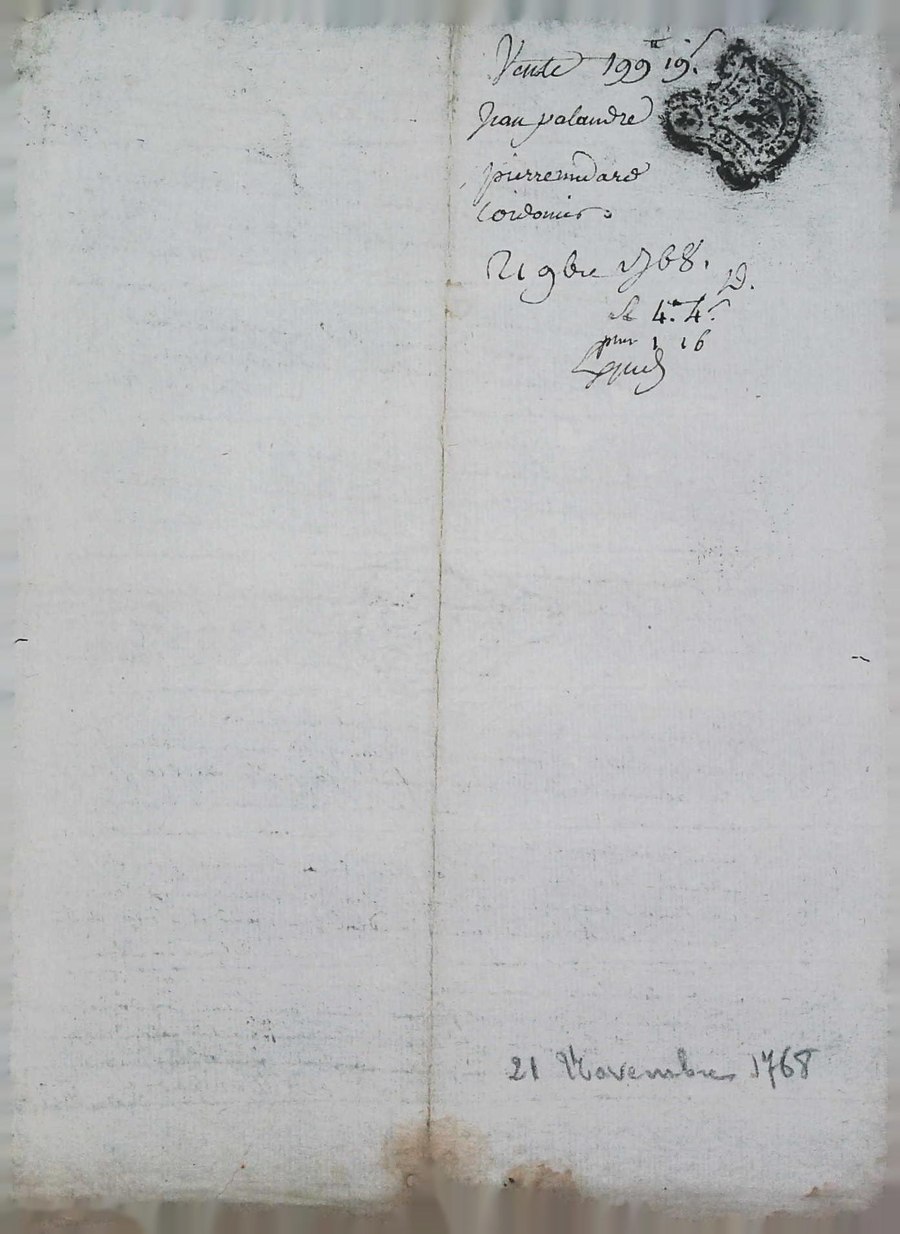 Vente 199tt 19s.
Jean palandre
pierre mudard
Cordonier.
21 9bre 1768.
D.
4tt 4s
pour 1 16
21 Novembre 1768